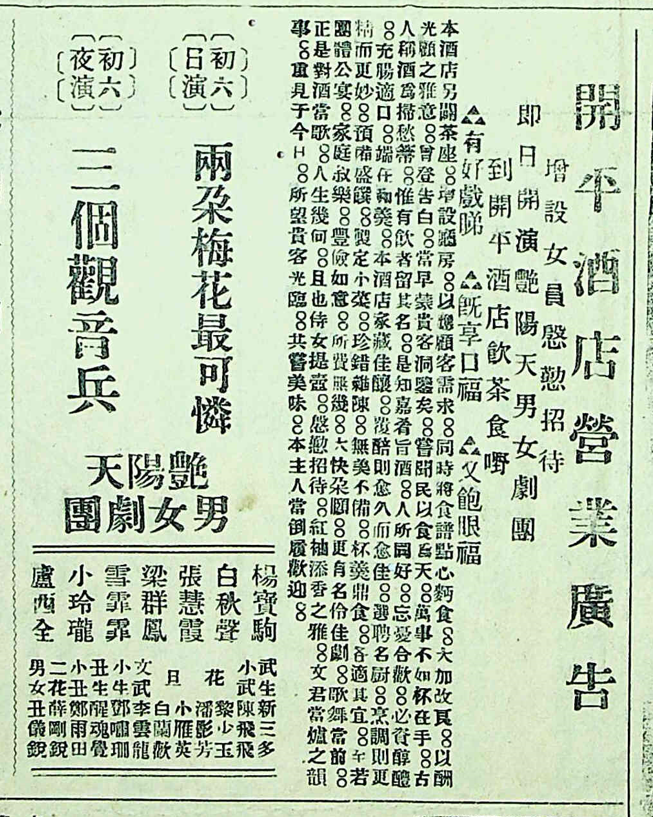 開平酒店營業廣告
增設女員慇懃招待
即日開演艷陽天男女劇團
到開平酒店飲茶食嘢
有好戲睇 既享口福 又飽眼福
本酒店另闢茶座。增設廳房。以應顧客需求。同時將食譜點心麪食。大加改良。以酬
光顧之雅意。曾登告白。當早蒙貴客洞鑒矣。嘗聞民以食為天。萬事不如杯在手。古
人稱酒為掃愁箒。惟有飲者留其名。是知嘉肴旨酒。人所同好。忘憂合歡。必資醇醴
。充腸適口。端在羹。本酒店家藏佳釀。醱醅則愈久而愈佳。選聘名厨。烹調則更
精而更妙。預備盛饌。製定小菜。珍錯雜陳。無美不備。杯羹鼎食。各適其宜。至若
團體公宴。家庭叙樂。豐儉如意。所費無幾。大快朶頤。更有名伶佳劇。歌舞當前。
正是對酒當歌。人生幾何。且也侍女提壺。慇懃招待。紅袖添香之雅。文君當爐之韻
事。重見于今日。所望貴客光臨。共嘗美味。本主人當倒履歡迎。
初六日演
兩朶梅花最可憐
初六夜演
三個觀音兵
艷陽天
男女劇團
楊寶駒
白秋聲
張慧霞
梁群鳳
雪霏霏
小玲瓏
盧西全
武生新三多
小武陳飛飛
花 黎少玉
潘影芳
旦 小雁英
白蘭歡
文武李雲龍
小生鄧嘯珊
丑生醒魂覺
小丑鄭雨田
二花薛剛銳
男女丑儀銳